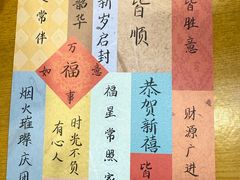 皆胜意
皆顺
新岁启封
韶华
常伴
万事如意
福
恭贺新禧
皆
财源广进
福星常照
时光不负
有心人
烟火璀璨